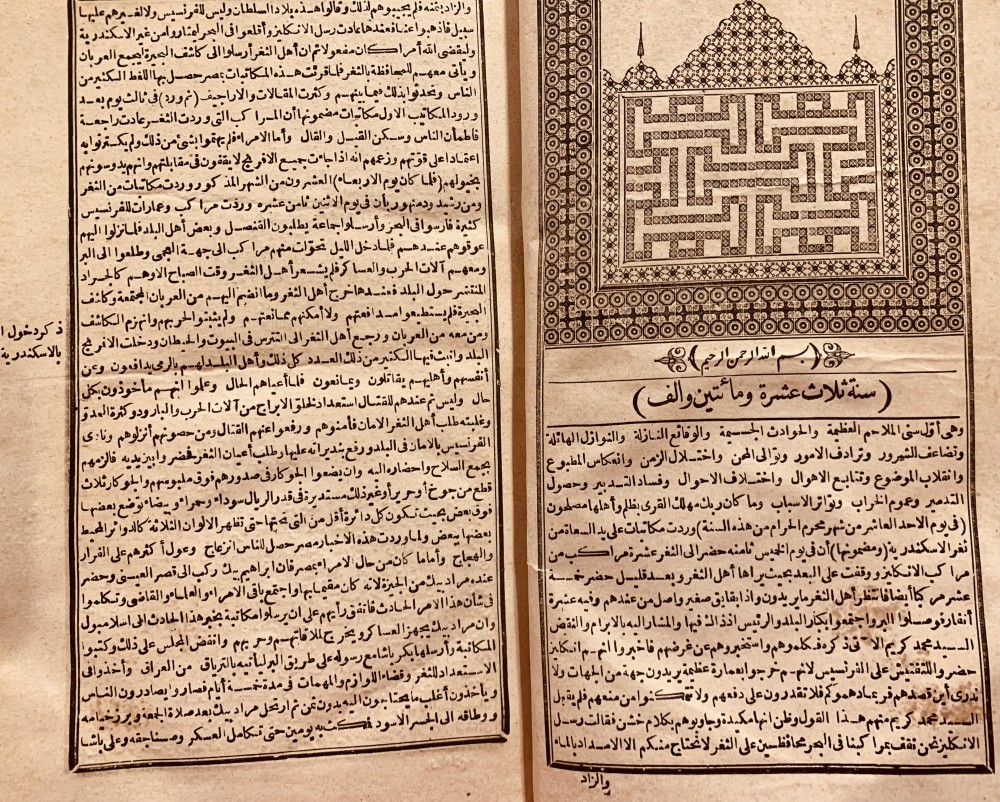 (بسم الله الرحمن الرحيم)
(سنة ثلاث عشرة ومائتين وألف)
وهى أول سنى الملاحم العظيمة والحوادث الجسيمة والوقائع النازلة والنوازل الهائلة
وتضاعف الشرور وترادف الامور وتوالى المحن واختلال الزمن وانعكاس المطبوع
وانقلاب الموضوع وتتابع الاهوال واختلاف الاحوال وفساد التدبير وحصول
التدمير وعموم الخراب وتواتر الاسباب وما كان ربك مهلك القرى بظلم وأهلها مصلحون
(فى يوم الاحد العاشر من شهر محرم الحرام من هذه السنة) وردت مكاتبات على يد السعاة من
ثغر الاسكندرية (ومضمونها) أن فى يوم الخميس ثامنه حضر الى الثغر عشرة مراكب من
مراكب الانكليز ووقفت على البعد بحيث يراها أهل الثغر وبعد قليل حضر خمسة
عشر مركبا أيضا فانتظر أهل الثغر ما يريدون واذا بقايق صغير واصل من عندهم وفيه عشرة
أنفار فوصلوا البر واجتمعوا بكبار البلد والرئيس اذ ذاك فيها والمشار اليه بالابرام والنقض
السيد محمد كريم الآتى ذكره فكلموهم واستخبروهم عن غرضهم فأخبروا انهم انكليز
حضروا للتفتيش على الفرنسيس لانهم خرجوا بعمارة عظيمة يريدون جهة من الجهات ولا
ندرى أين قصدهم فربما دهموكم فلا تقدرون على دفعهم ولا تتمكنوا من منعهم فلم يقبل
السيد محمد كريم منهم هذا القول وظن انها مكيدة وجاوبوهم بكلام خشن فقالت رسل
الانكليز نحن نقف بمراكبنا فى البحر محافظين على الثغر لا نحتاج منكم الا الامداد بالماء
والزاد
والزاد بثمنه فلم يجيبوهم لذلك وقالوا هذه بلاد السلطان وليس للفرنسيس ولا لغيرهم عليها
سبيل فاذهبوا عنا فعندها عادت رسل الانكليز وأقلعوا فى البحر ليمتاروا من غير الاسكندرية
وليقضى الله أمرا كان مفعولا ثم ان أهل الثغر أرسلوا الى كاشف البحيرة ليجمع العربان
ويأتى معهم للمحافظة بالثغر فلما قرئت هذه المكاتبات بمصر حصل بها اللغط الكثير من
الناس وتحدثوا بذلك فيما بينهم وكثرت المقالات والاراجيف (ثم ورد) فى ثالث يوم بعد
ورود المكاتيب الاول مكاتبات مضمونها أن المراكب التى وردت الثغر عادت راجعة
فاطمأن الناس وسكن القيل والقال وأما الامراء فلم يهتموا بشئ من ذلك ولم يكترثوا به
اعتمادا على قوتهم وزعمهم انه اذا جاءت جميع الافرنج لا يقفون فى مقابلتهم وانهم يدوسونهم
بخيولهم (فلما كان يوم الاربعاء) العشرون من الشهر المذكور وردت مكاتبات من الثغر
ومن رشيد ودمنهور بأن فى يوم الاثنين ثامن عشره وردت مراكب وعمارات للفرنسيس
كثيرة فأرسوا فى البحر وأرسلوا جماعة يطلبون القنصل وبعض أهل البلد فلما نزلوا اليهم
عوقوهم عندهم فلما دخل الليل تحولت منهم مراكب الى جهة العجمى وطلعوا الى البر
ومعهم آلات الحرب والعساكر فلم يشعر أهل الثغر وقت الصباح الا وهم كالجراد
المنتشر حول البلد فعندها خرج أهل الثغر وما انضم اليهم من العربان المجتمعة وكاشف
البحيرة فلم يستطيعوا مدافعتهم ولا أمكنهم ممانعتهم ولم يثبتوا لحربهم وانهزم الكاشف
ومن معه من العربان ورجع أهل الثغر الى التترس فى البيوت والحيطان ودخلت الافرنج
البلد وانبث فيها الكثير من ذلك العدد كل ذلك وأهل البلد لهم بالرمى يدافعون وعن
أنفسهم وأهليهم يقاتلون ويمانعون فلما أعياهم الحال وعلموا انهم مأخوذون بكل
حال وليس ثم عندهم للقتال استعداد لخلو الابراج من آلات الحرب والبارود وكثرة العدو
وغلبته طلب أهل الثغر الامان فأمنوهم ورفعوا عنهم القتال ومن حصونهم أنزلوهم ونادى
الفرنسيس بالامان فى البلد ورفع بنديراته عليها وطلب أعيان الثغر فحضروا بين يديه فألزمهم
بجمع السلاح واحضاره اليه وان يضعوا الجوكار فى صدورهم فوق ملبوسهم والجوكار ثلاث
قطع من جوخ أو حرير أو غير ذلك مستديرة فى قدر الريال سوداء وحمراء وبيضاء توضع بعضها
فوق بعض بحيث تكون كل دائرة أقل من التى تحتها حتى تظهر الالوان الثلاثة كالدوائر المحيط
بعضها ببعض ولما وردت هذه الاخبار مصر حصل للناس انزعاج وعول أكثرهم على الفرار
والهجاج وأما ما كان من حال الامراء بمصر فان ابراهيم بيك ركب الى قصر العينى وحضر
عنده مراد بيك من الجيزة لانه كان مقيما بها واجتمع باقى الامراء والعلماء والقاضى وتكلموا
فى شأن هذا الامر الحادث فاتفق رأيهم على ان يرسلوا مكاتبة بخبر هذا الحادث الى اسلامبول
وان مراد بيك يجهز العساكر ويخرج لملاقاتهم وحربهم وانفض المجلس على ذلك وكتبوا
المكاتبة وأرسلها بكر باشا مع رسوله على طريق البر ليأتيه بالترياق من العراق وأخذوا فى
الاستعداد للثغر وقضاء اللوازم والمهمات فى مدة خمسة أيام فصاروا يصادرون الناس
ويأخذون أغلب ما يحتاجون اليه بدون ثمن ثم ارتحل مراد بيك بعد صلاة الجمعة وبرز خيامه
ووطاقه الى الجسر الاسود فمكث به يومين حتى تكامل العسكر وصناجقه وعلى باشا
ذكر دخول ا
بالاسكندرية